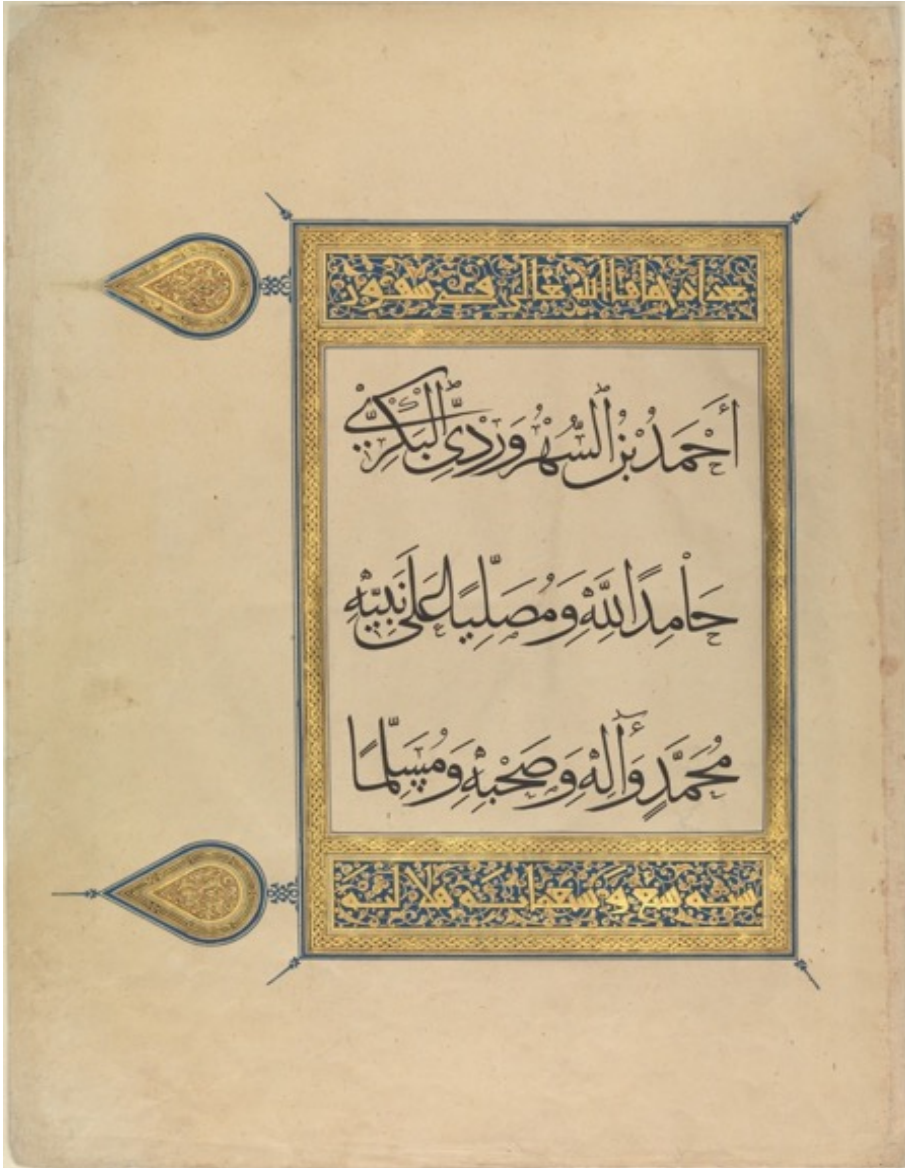 حماها الله تعالى في شهور
أَحْمَدُ بْنُ السُّهْرَوَرْدِيِّ الْبَكْرِيِّ
حَامِدًا لِلَّهِ وَمُصَلِّيًا عَلَى نَبِيِّهِ
مُحَمَّدٍ وَآلِهِ وَصَحْبِهِ وَمُسَلِّمًا
سنة سبع وسبعمائة هلالية